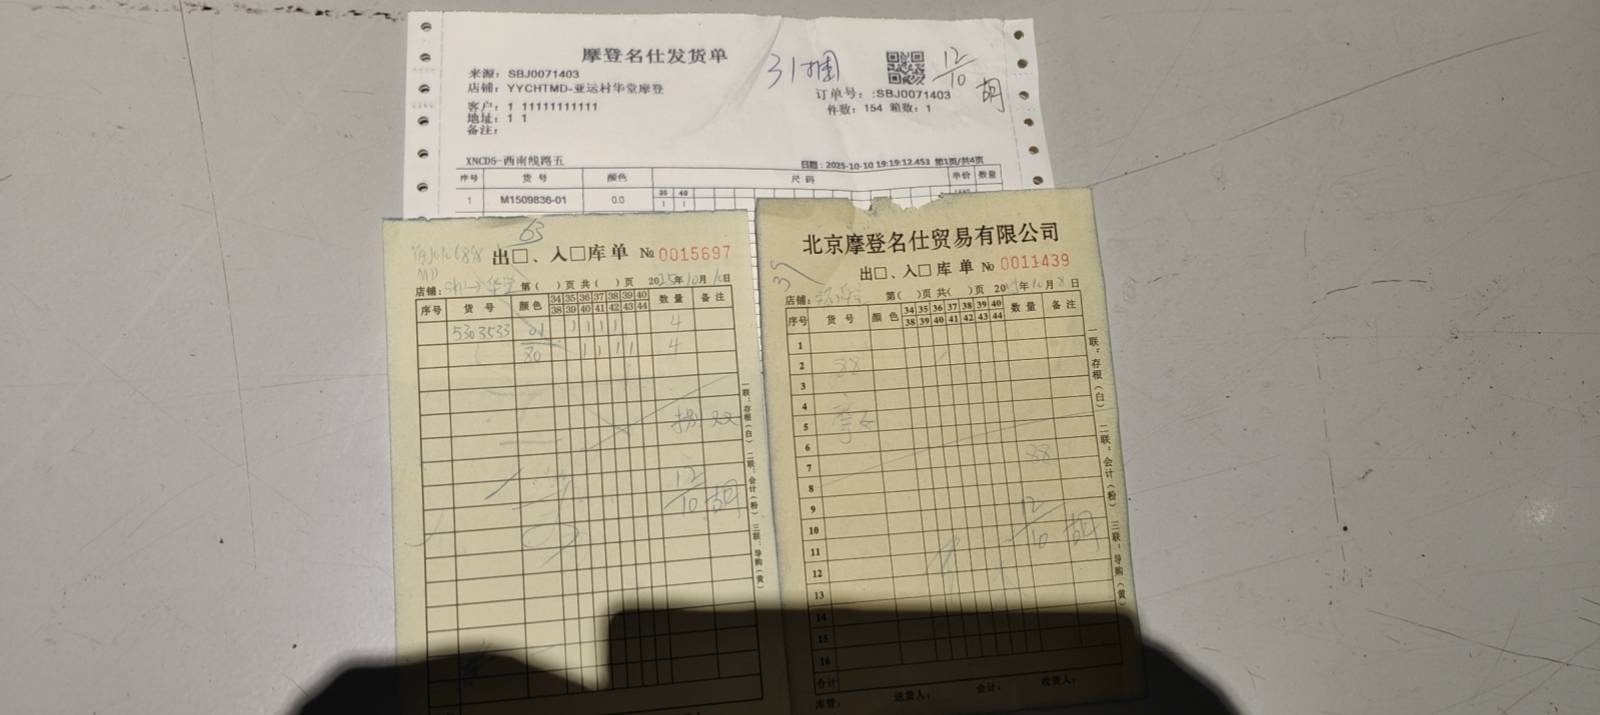 摩登名仕发货单
31捆
12/10 胡
来源：SBJ0071403
店铺：YYCHTMD-亚运村华堂摩登
订单号：:SBJ0071403
客户：1 11111111111
件数：154 箱数：1
地址：1 1
备注：
XNCD5-西南线路五
日期：2025-10-10 19:19:12.453 第1页/共4页
序号 货 号 颜色 尺 码 单价 数量
35 40
1 M1509836-01 0.0 1 1
63
出□、入□库单 № 0015697
店铺： 第( )页 共( )页 2025年10月10日
序号 货 号 颜 色 34 35 36 37 38 39 40 数 量 备 注
38 39 40 41 42 43 44
5303533 01 1 1 1 1 4
80 1 1 1 1 4
捌双
12/10 胡
一联：存根(白) 二联：会计(粉) 三联：导购(黄)
北京摩登名仕贸易有限公司
出□、入□库单 № 0011439
店铺： 第( )页 共( )页 20 年10月8日
序号 货 号 颜 色 34 35 36 37 38 39 40 数 量 备 注
38 39 40 41 42 43 44
1
2 38
3
4
5
6
7 38
8
9
10 12/10 胡
11
12
13
14
15
16
合计
库管： 送货人： 会计： 收货人：
一联：存根(白) 二联：会计(粉) 三联：导购(黄)